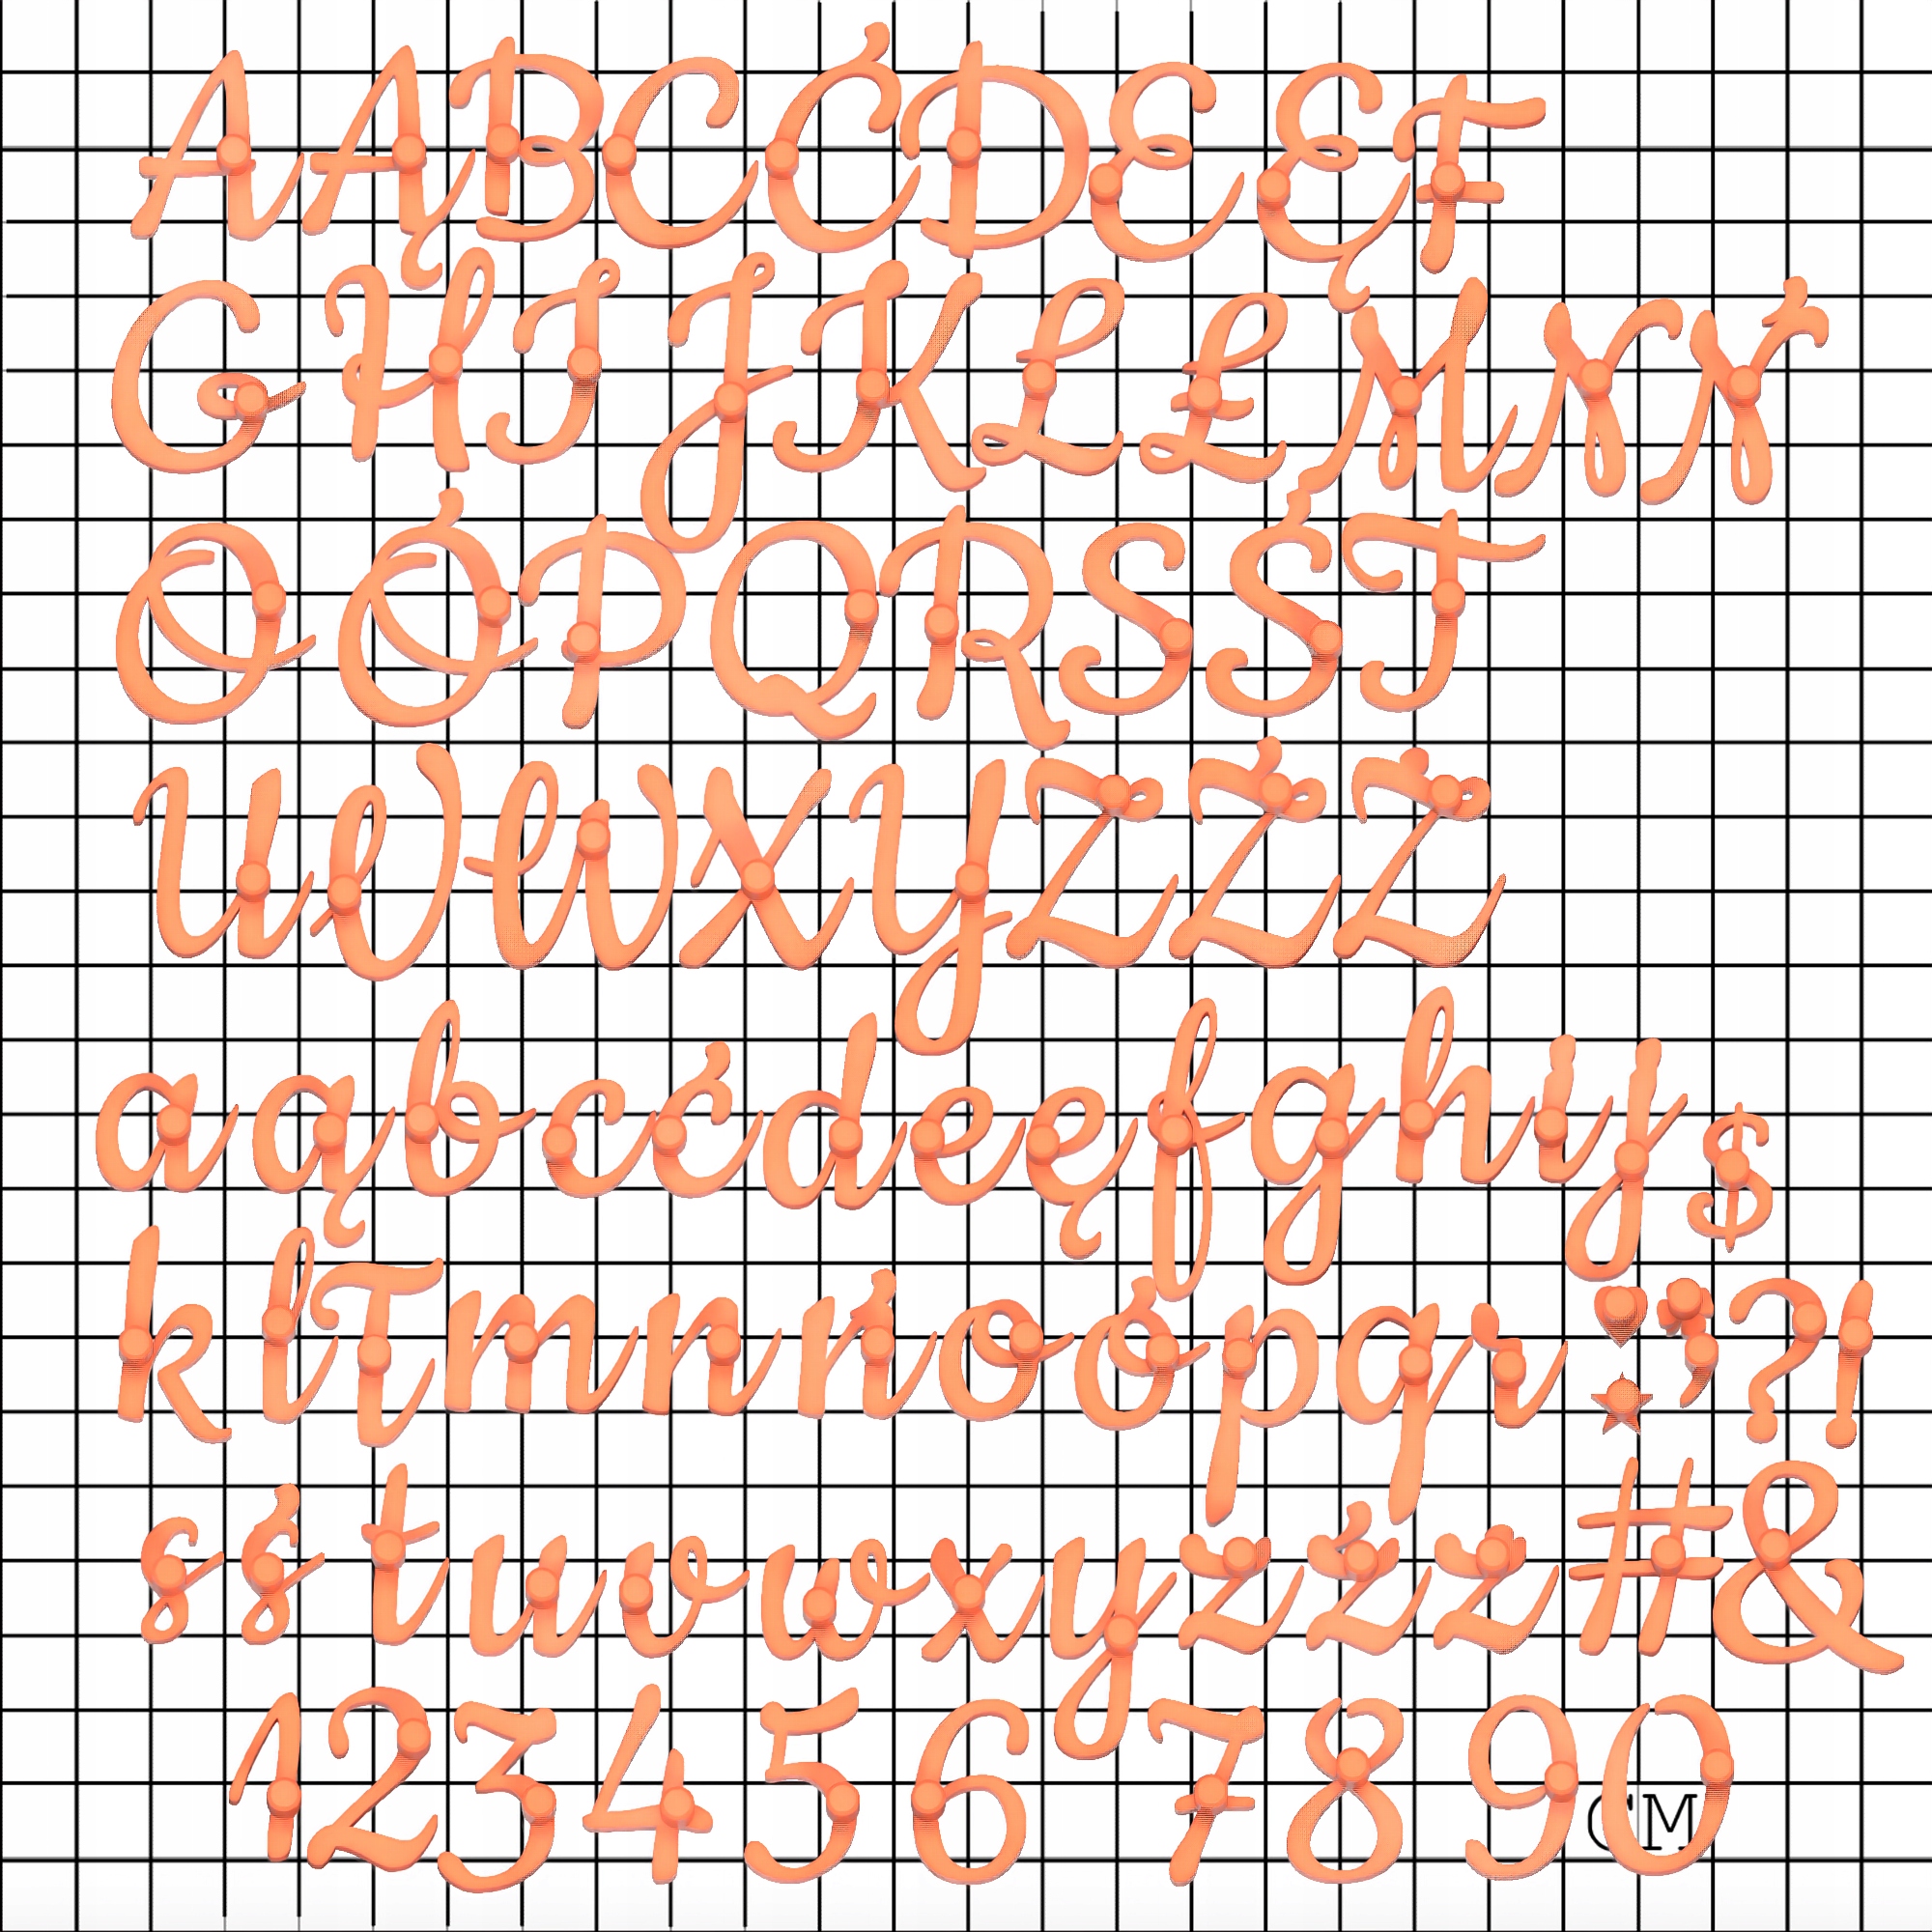 AĄBCĆDEĘF
GHIJKLŁMNŃ
OÓPQRSŚT
UVWXYZŹŻ
aąbcćdeęfghij$
klłmnńoópqr♥,?!
★
sśtuvwxyzźż#&
1234567890
CM